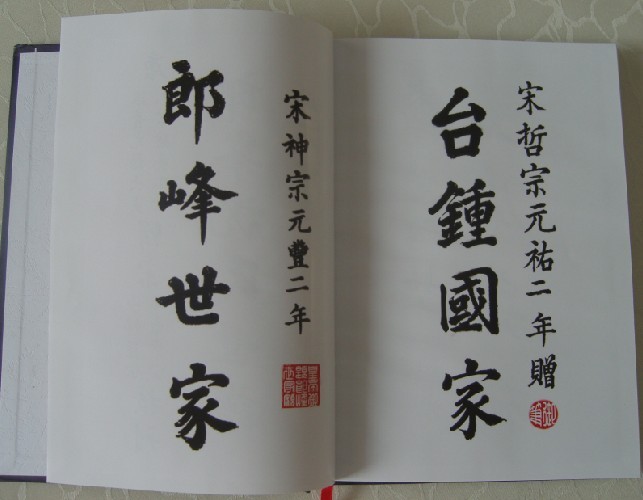 宋哲宗元祐二年贈
台鍾國家
宋神宗元豐二年
郎峰世家